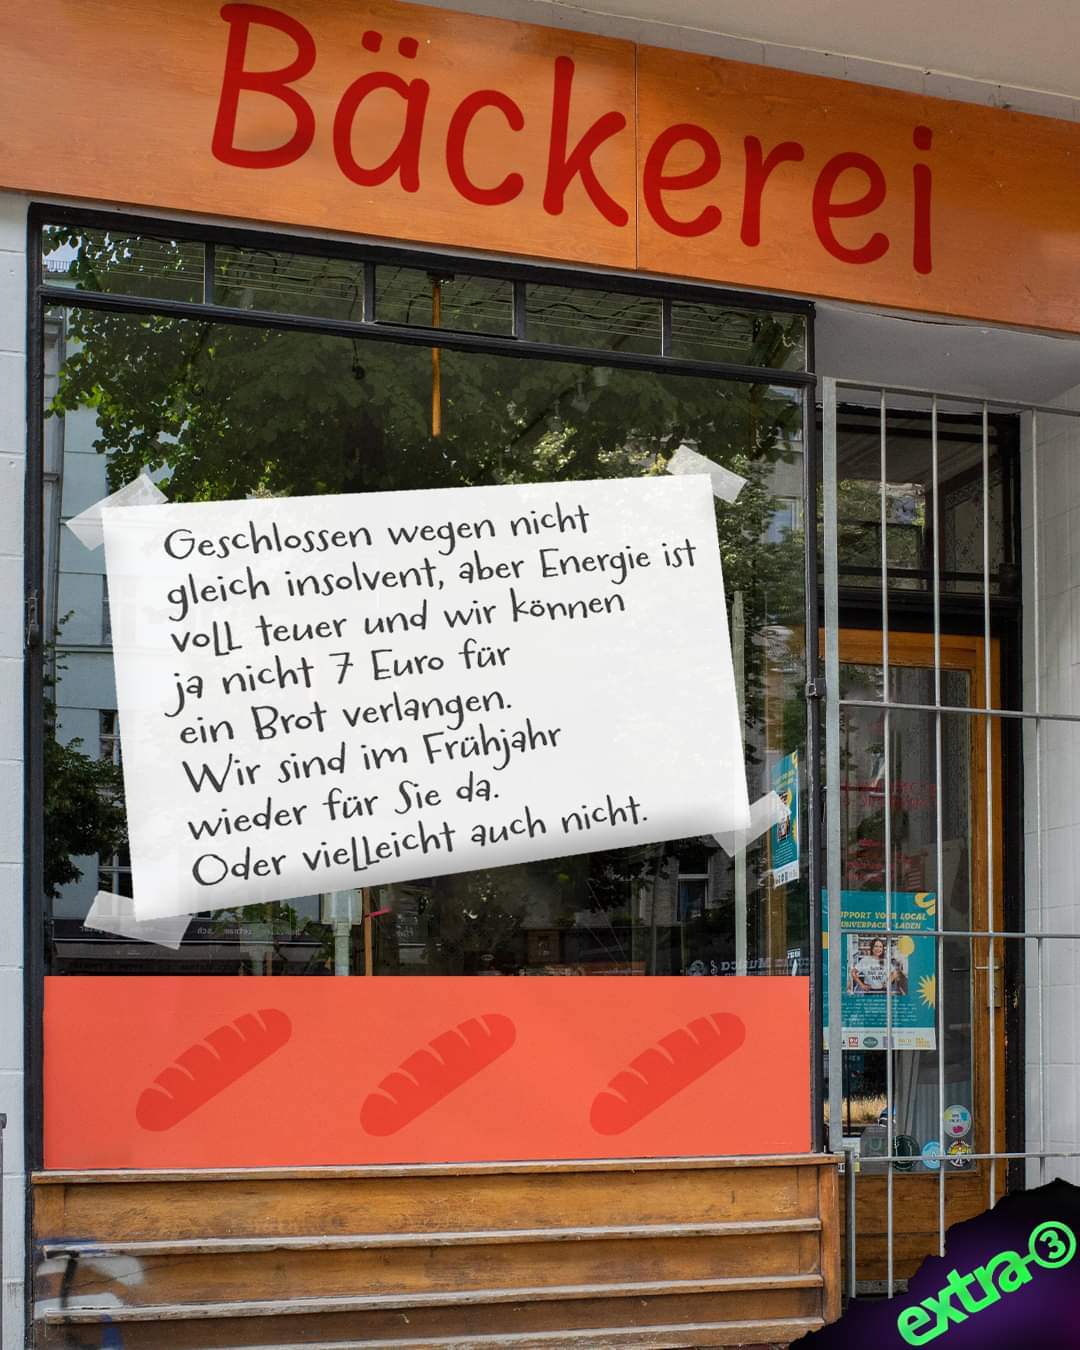 Bäckerei
Geschlossen wegen nicht
gleich insolvent, aber Energie ist
voll teuer und wir können
ja nicht 7 Euro für
ein Brot verlangen.
Wir sind im Frühjahr
wieder für Sie da.
Oder vielleicht auch nicht.
SUPPORT YOUR LOCAL
UNVERPACKT LADEN
extra-3